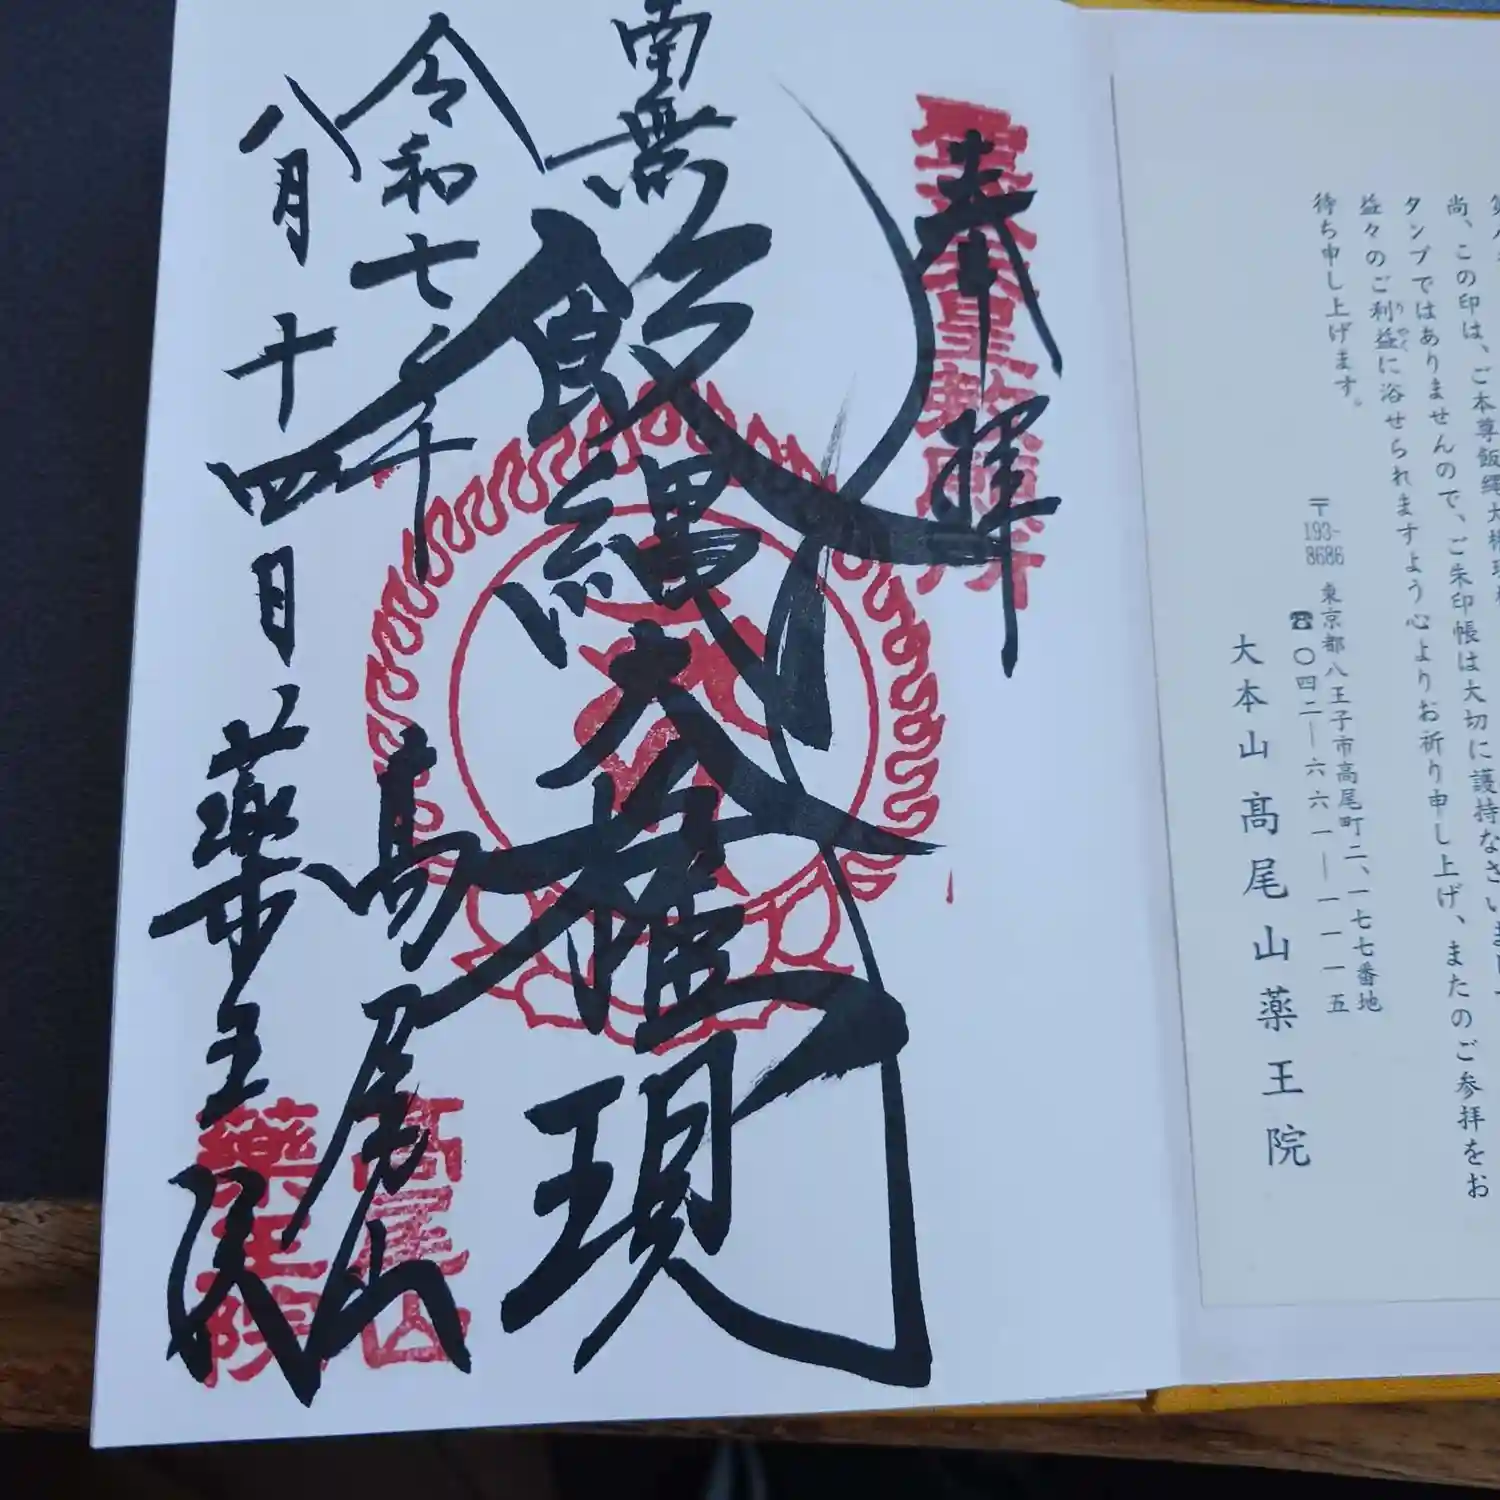 尚、この印は、ご本尊飯縄大権現
タンプではありませんので、ご朱印帳は大切に護持なさいまし
益々のご利益に浴せられますよう心よりお祈り申し上げ、またのご参拝をお
りやく
待ち申し上げます。
〒193-8686 東京都八王子市高尾町二、一七七番地
☎〇四二―六六一―一一一五
大本山 髙尾山薬王院
奉拝
南無飯縄大権現
令和七年
八月十四日
高尾山
薬王院
高尾山
薬王院